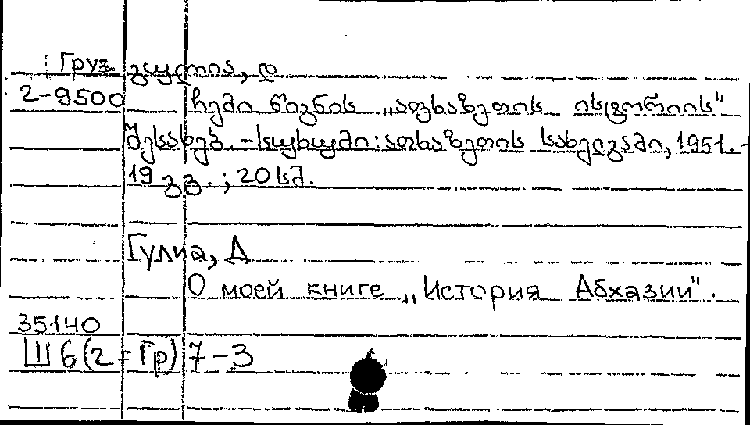 Груз გულია, დ
2-9500 ჩემი წიგნის „აფხაზეთის ისტორიის"
შესახებ. - სოხუმი: აფხაზეთის სახელგამი, 1951. -
19 გვ. ; 20 სმ.
Гулиа, Д
О моей книге „История Абхазии".
35140
Ш6(2=Гр)7-3